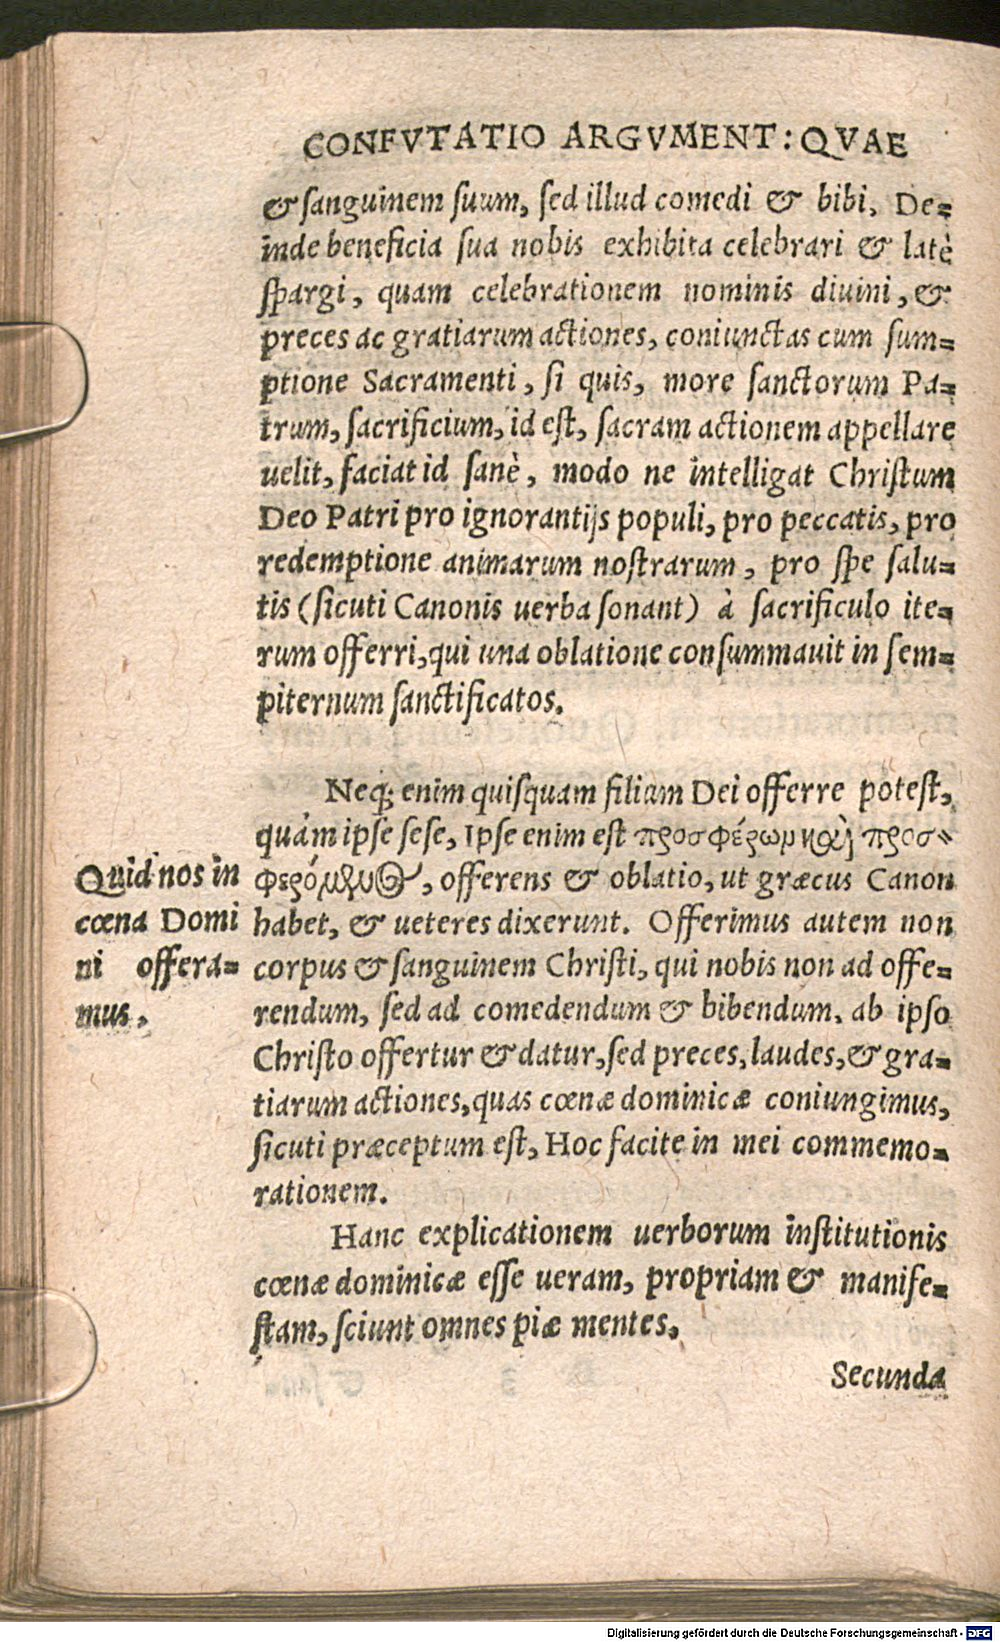 CONFVTATIO ARGVMENT: QVAE
& sanguinem suum, sed illud comedi & bibi, De=
inde beneficia sua nobis exhibita celebrari & latè
spargi, quam celebrationem nominis diuini, &
preces ac gratiarum actiones, coniunctas cum sum=
ptione Sacramenti, si quis, more sanctorum Pa=
trum, sacrificium, id est, sacram actionem appellare
uelit, faciat id sanè, modo ne intelligat Christum
Deo Patri pro ignorantijs populi, pro peccatis, pro
redemptione animarum nostrarum, pro spe salu=
tis (sicuti Canonis uerba sonant) à sacrificulo ite=
rum offerri, qui una oblatione consummauit in sem=
piternum sanctificatos.
Neq; enim quisquam filium Dei offerre potest,
quàm ipse sese, Ipse enim est προσφέρωμ καὶ προσ=
φερόμενος, offerens & oblatio, ut græcus Canon
habet, & ueteres dixerunt. Offerimus autem non
corpus & sanguinem Christi, qui nobis non ad offe=
rendum, sed ad comedendum & bibendum, ab ipso
Christo offertur & datur, sed preces, laudes, & gra=
tiarum actiones, quas cœnæ dominicæ coniungimus,
sicuti præceptum est, Hoc facite in mei commemo=
rationem.
Quid nos in
cœna Domi
ni offera=
mus.
Hanc explicationem uerborum institutionis
cœnæ dominicæ esse ueram, propriam & manife=
stam, sciunt omnes piæ mentes.
Secunda
Digitalisierung gefördert durch die Deutsche Forschungsgemeinschaft - DFG